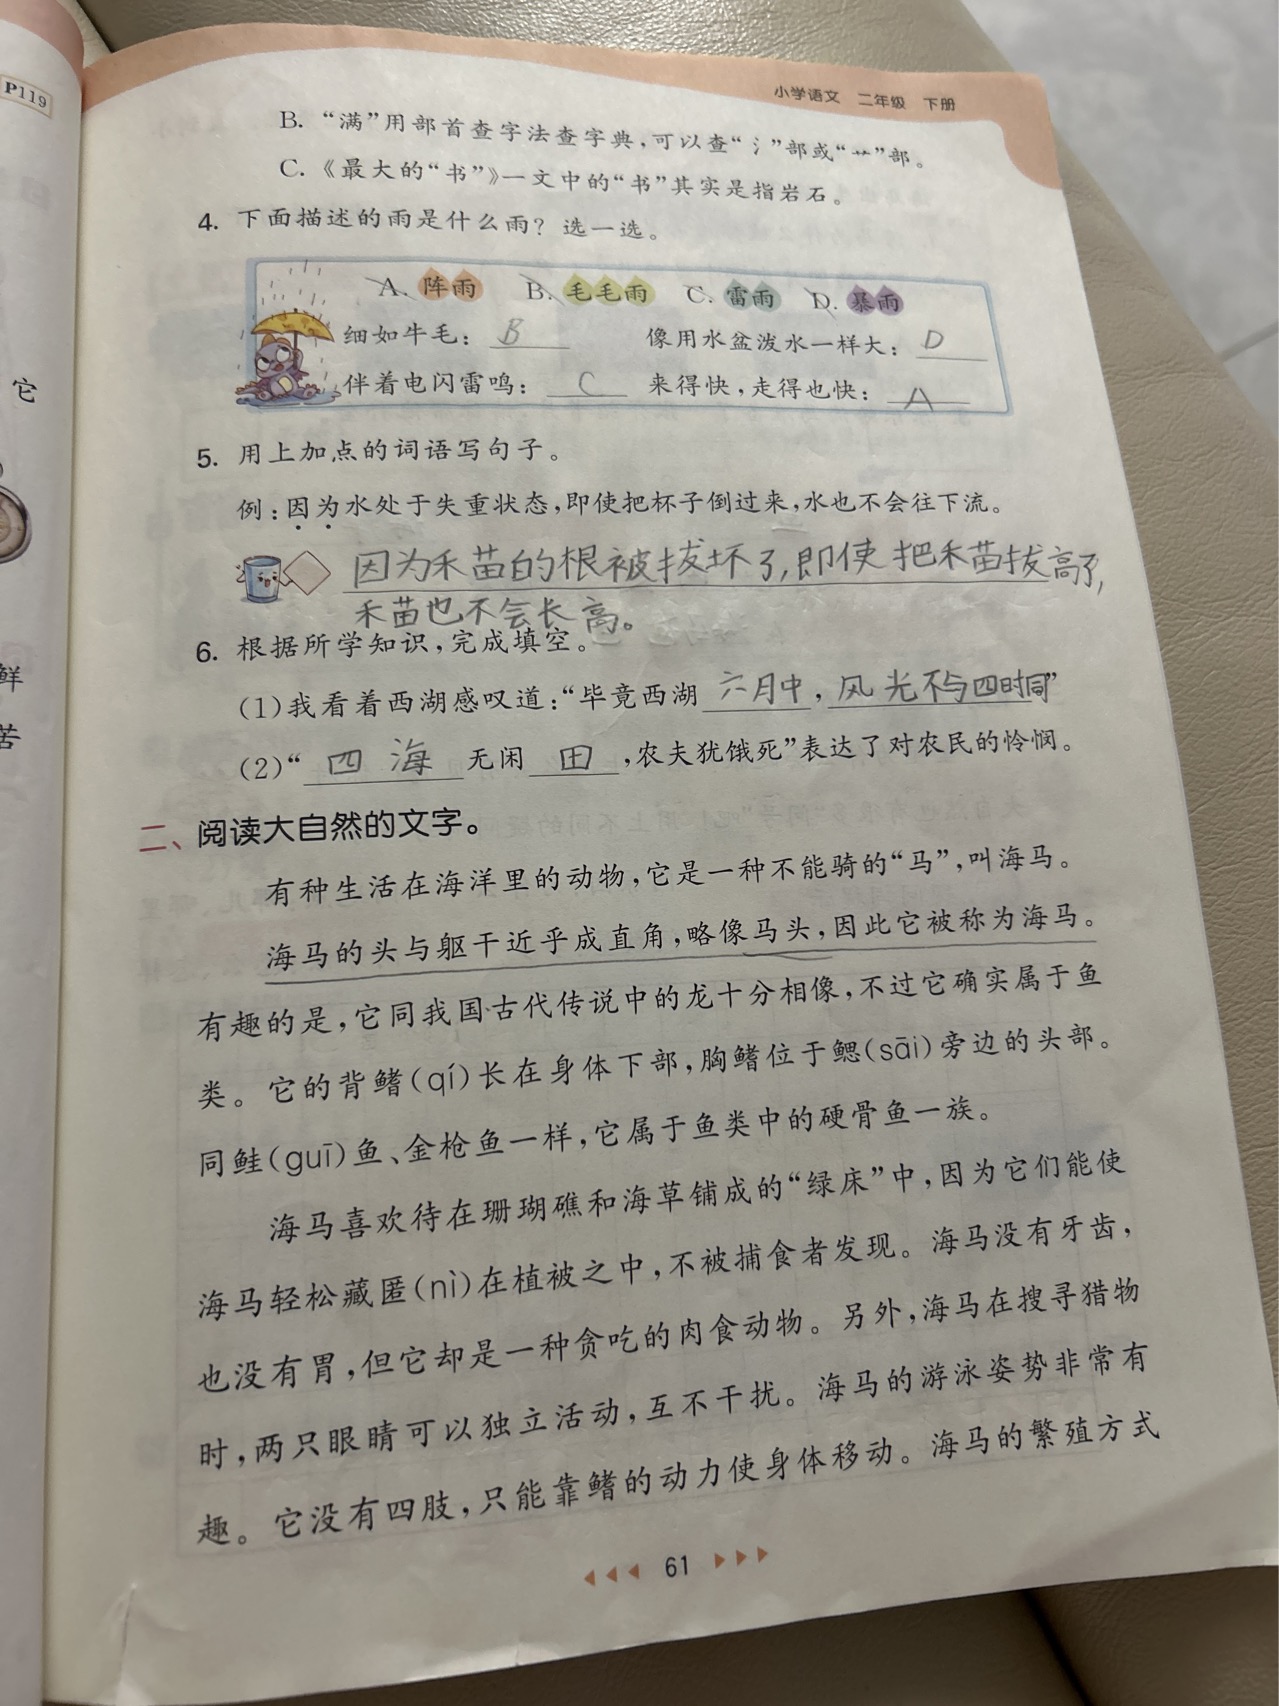 P119
小学语文 二年级 下册
B. “满”用部首查字法查字典，可以查“氵”部或“艹”部。
C.《最大的“书”》一文中的“书”其实是指岩石。
4. 下面描述的雨是什么雨？选一选。
A. 阵雨 B. 毛毛雨 C. 雷雨 D. 暴雨
细如牛毛：B 像用水盆泼水一样大：D
伴着电闪雷鸣：C 来得快，走得也快：A
它
5. 用上加点的词语写句子。
例：因为水处于失重状态，即使把杯子倒过来，水也不会往下流。
因为禾苗的根被拔坏了，即使把禾苗拔高了，
禾苗也不会长高。
6. 根据所学知识，完成填空。
鲜
(1)我看着西湖感叹道：“毕竟西湖六月中，风光不与四时同”
苦
(2)“四海无闲田，农夫犹饿死”表达了对农民的怜悯。
二、阅读大自然的文字。
有种生活在海洋里的动物，它是一种不能骑的“马”，叫海马。
海马的头与躯干近乎成直角，略像马头，因此它被称为海马。
有趣的是，它同我国古代传说中的龙十分相像，不过它确实属于鱼
类。它的背鳍(qí)长在身体下部，胸鳍位于鳃(sāi)旁边的头部。
同鲑(guī)鱼、金枪鱼一样，它属于鱼类中的硬骨鱼一族。
海马喜欢待在珊瑚礁和海草铺成的“绿床”中，因为它们能使
海马轻松藏匿(nì)在植被之中，不被捕食者发现。海马没有牙齿，
也没有胃，但它却是一种贪吃的肉食动物。另外，海马在搜寻猎物
时，两只眼睛可以独立活动，互不干扰。海马的游泳姿势非常有
趣。它没有四肢，只能靠鳍的动力使身体移动。海马的繁殖方式
61